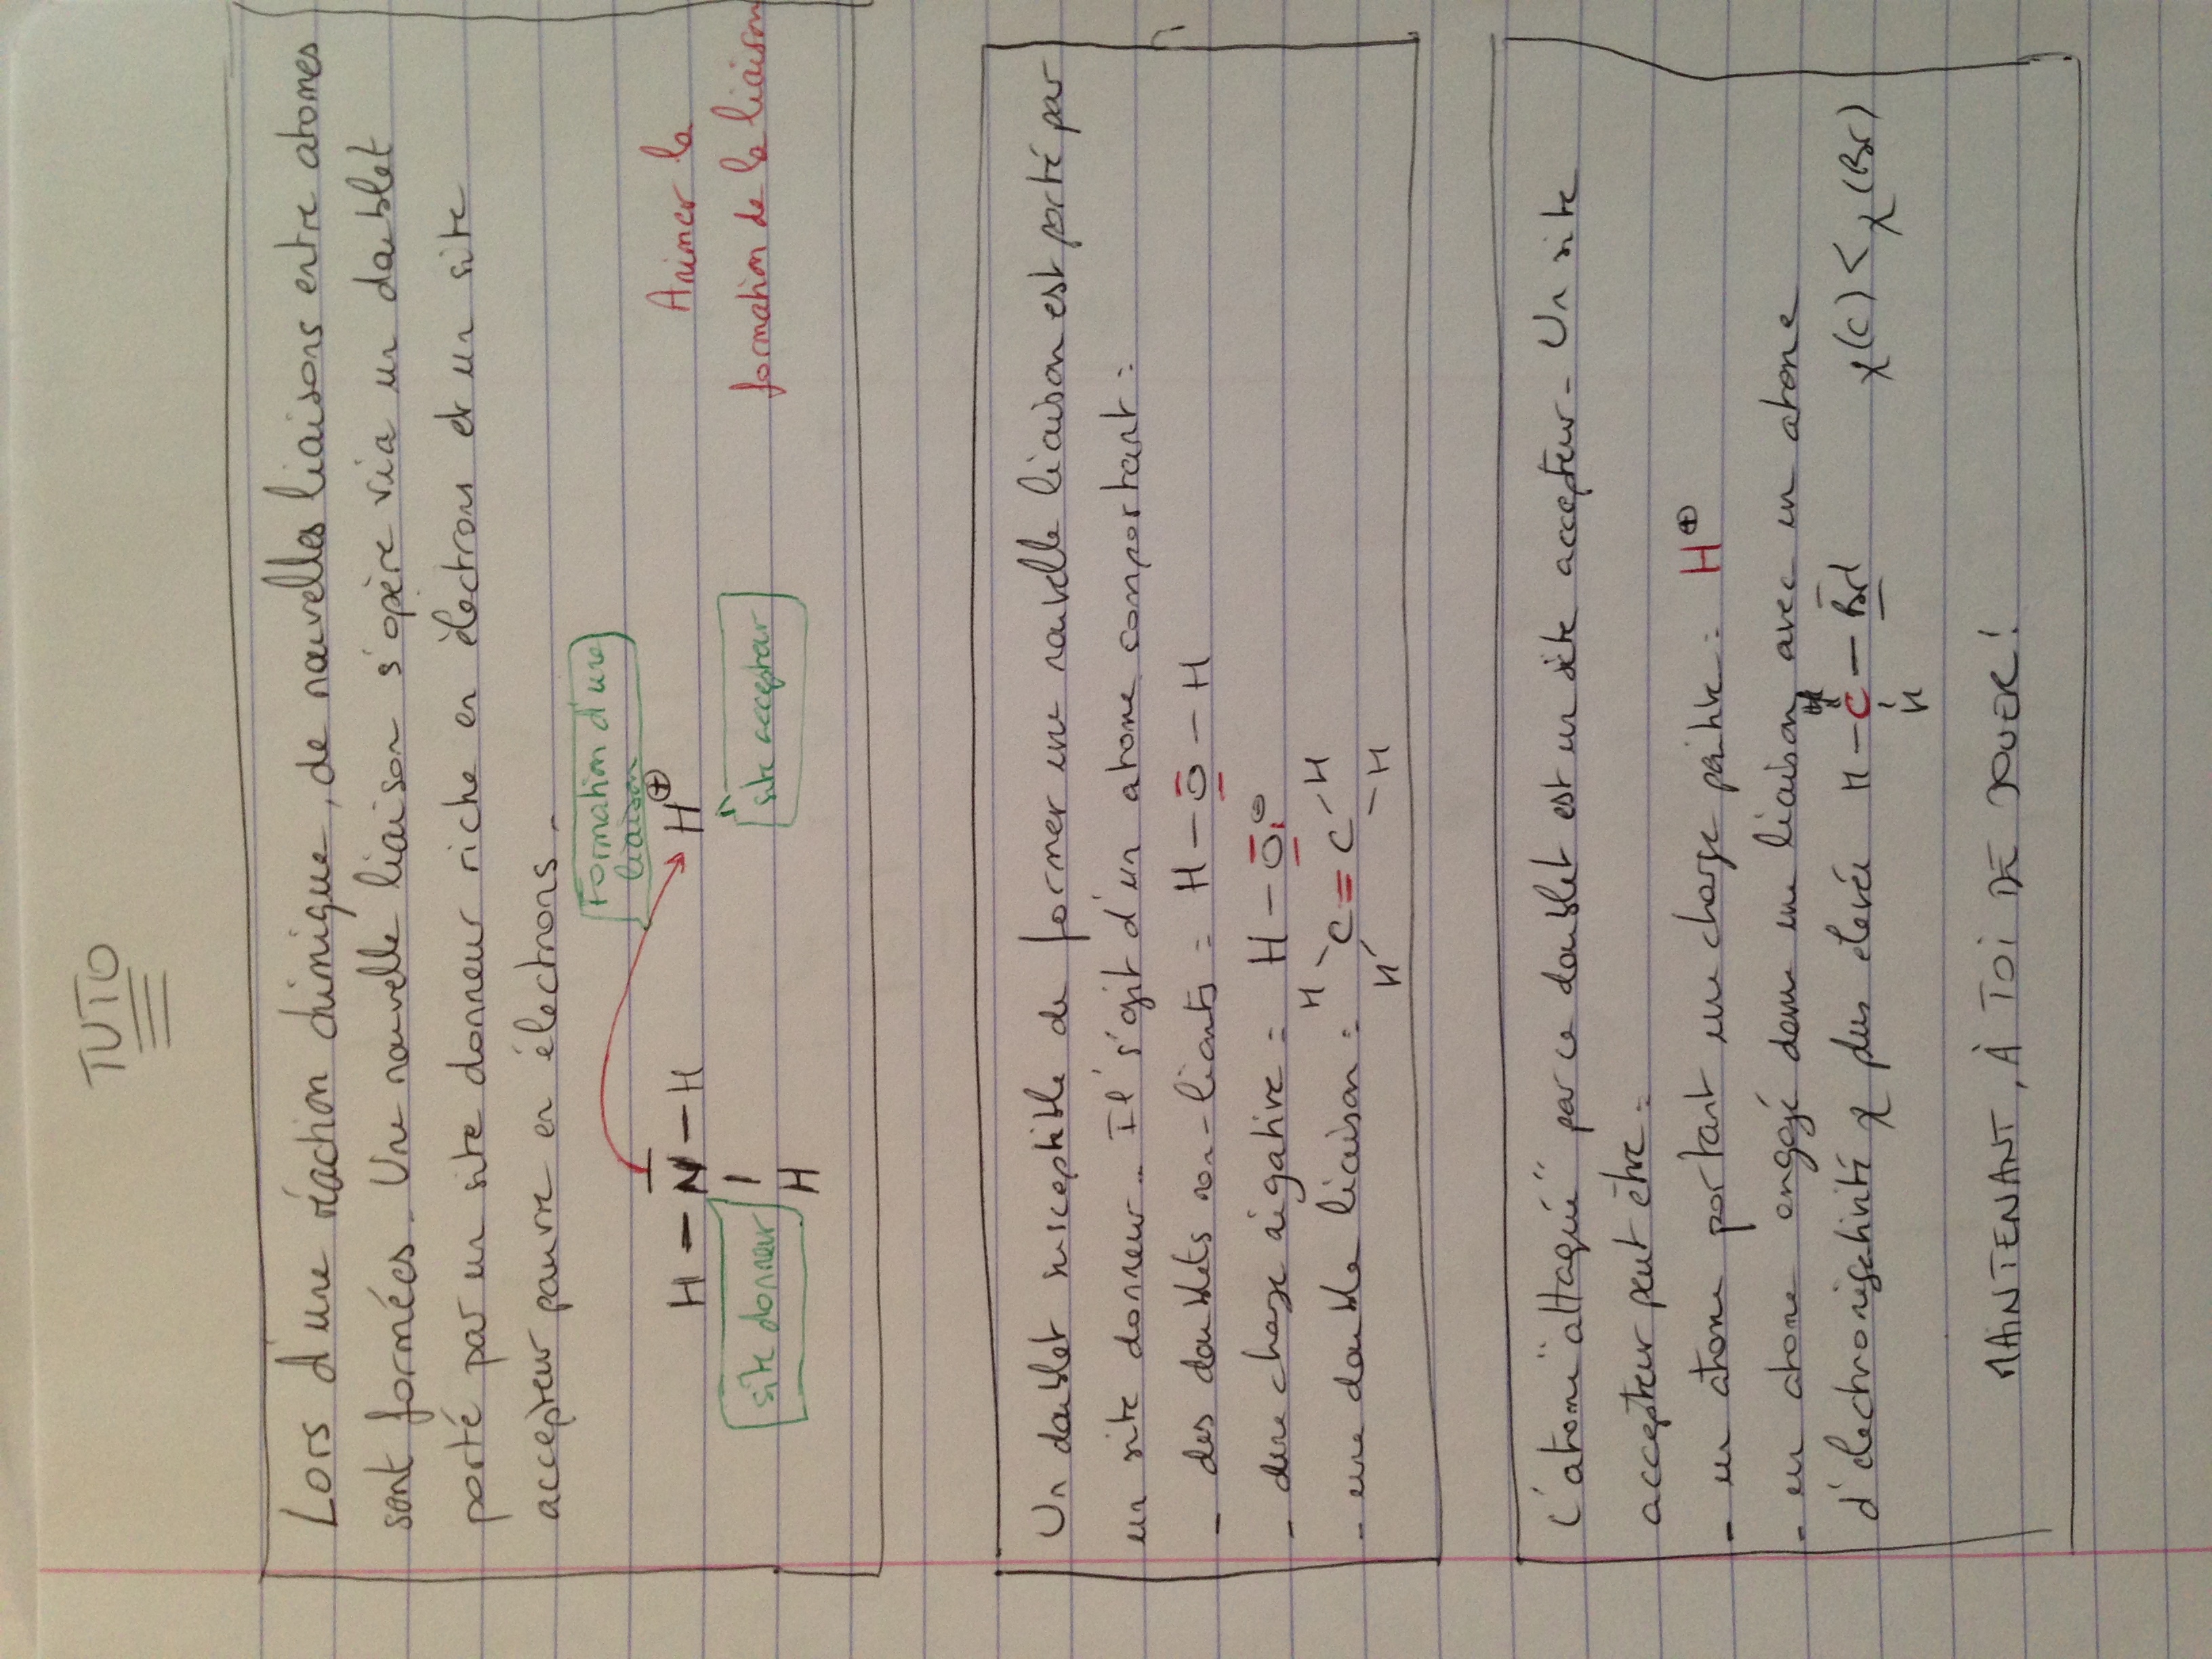 TUTO
Lors d'une réaction chimique, de nouvelles liaisons entre atomes
sont formées. Une nouvelle liaison s'opère via un doublet
porté par un site donneur riche en électrons et un site
accepteur pauvre en électrons.
Formation d'une
liaison
H - N - H H⊕
Animer la
H
site donneur
site accepteur
formation de la liaison
Un doublet susceptible de former une nouvelle liaison est porté par
un site donneur. Il s'agit d'un atome comportant :
- des doublets non-liants : H - O - H
- une charge négative : H - O ⊖
- une double liaison : H H C = C H H
L'atome "attaqué" par ce doublet est un site accepteur. Un site
accepteur peut être :
- un atome portant une charge positive : H⊕
- un atome engagé dans une liaison avec un atome
d'électronégativité χ plus élevée H - C - Br χ(C) < χ(Br)
H
MAINTENANT, À TOI DE JOUER !